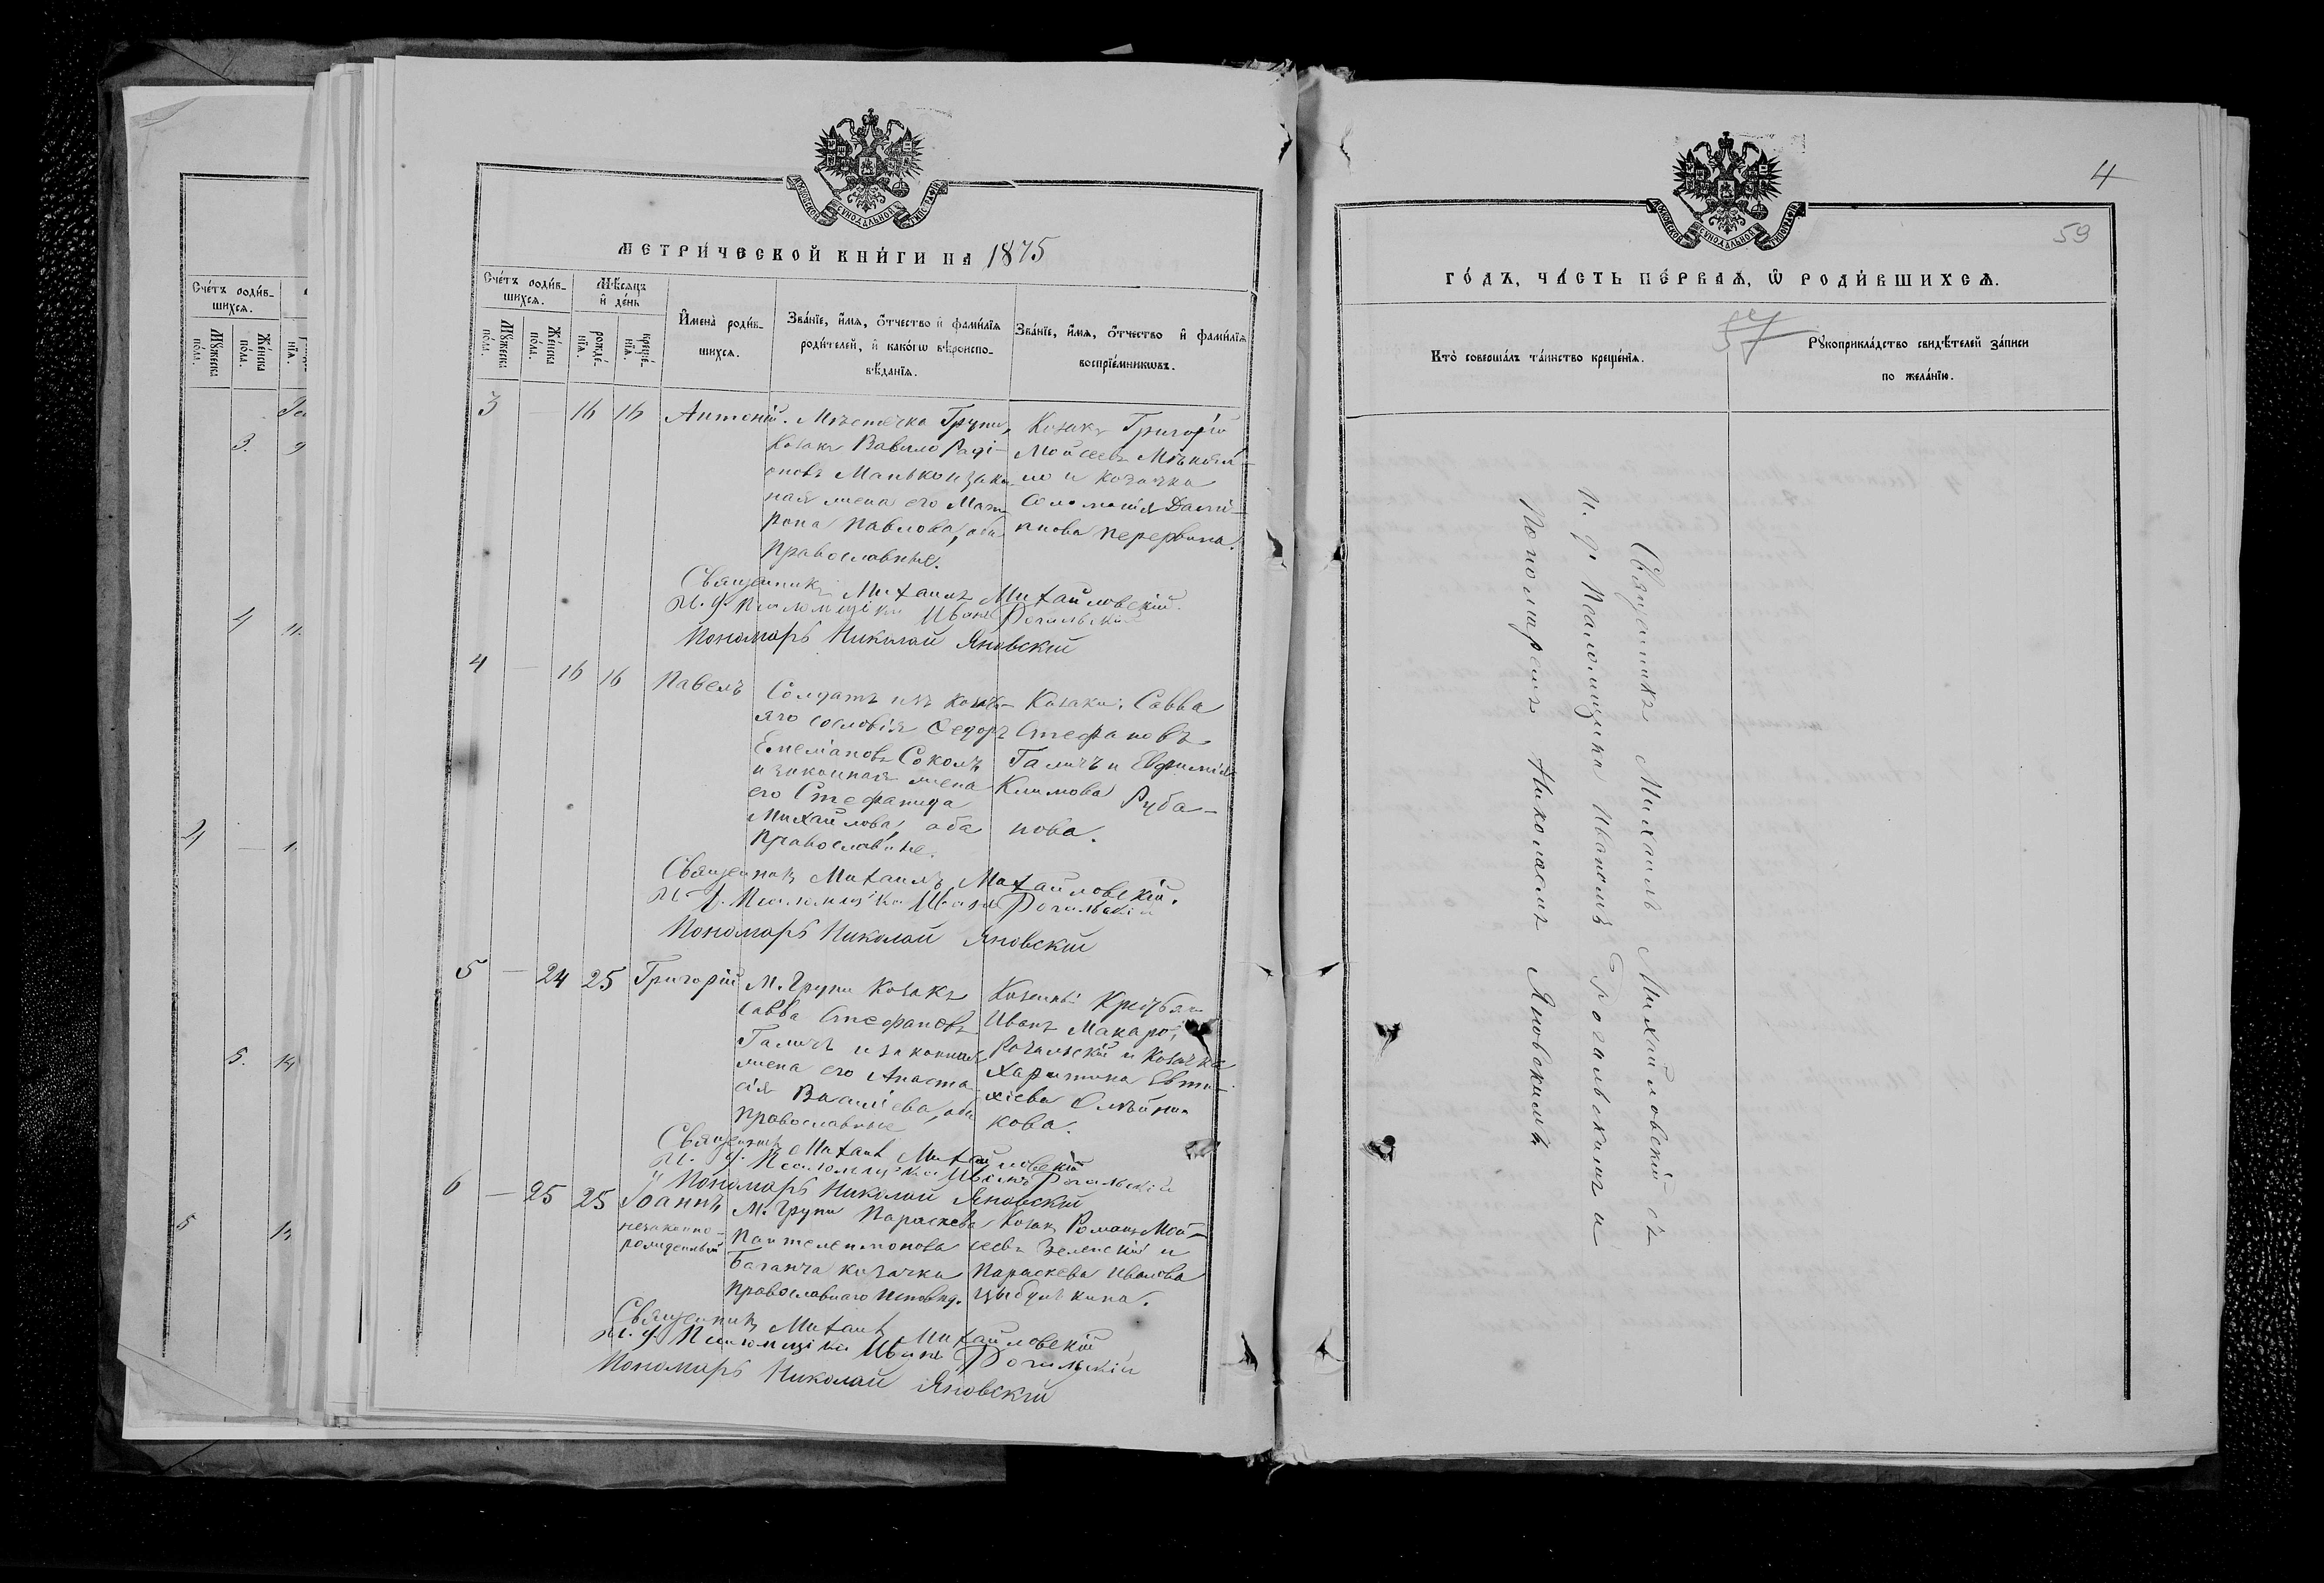 МОСКОВСКОЙ СѴНОДАЛЬНОЙ ТИПОГРАФІИ
МЕТРИ́ЧЕСКОЙ КНИ́ГИ НА 1875
Сче́тъ роди́в-
шихсѧ.
Мѣ́сѧцъ
и҆ де́нь
Мꙋ́жеска
по́ла.
Же́нска
по́ла.
рожде́-
нїѧ.
креще́-
нїѧ.
И҆мена̀ роди́в-
шихсѧ.
Зва́нїе, и҆́мѧ, ѻ҆́тчество и҆ фами́лїѧ
роди́телей, и҆ како́гѡ вѣроиспо-
вѣ́данїѧ.
Зва́нїе, и҆́мѧ, ѻ҆́тчество и҆ фами́лїѧ
воспрїе́мникѡвъ.
3 — 16 16 Антоній. Мѣстечка Груни,
козакъ Вавило Раді-
оновъ Манько и закон-
ная жена его Мат-
рона Павлова, оба
православные.
Козакъ Григорій
Мойсеевъ
и козачка
Соломонія
Перервина.
Священникъ Михаилъ Михайловскій.
И. д. Псаломщика Иванъ Рогальскій
Пономарь Николай Яновскій
4 — 16 16 Павелъ
Солдатъ изъ козачь-
яго сословія Ѳедоръ
Емеліановъ Соколъ
и законная жена
его Стефанида
Михайлова, оба
православные.
Козаки: Савва
Стефановъ
Галичъ и Евфимія
Климова Руба-
нова.
Священникъ Михаилъ Михайловскій.
И. д. Псаломщика Иванъ Рогальскій
Пономарь Николай Яновскій
5 — 24 25 Григорій
М. Груни козакъ
Савва Стефановъ
Галичъ и законная
жена его Анаста-
сія Василіева, оба
православные
Иванъ Макаров
Рогальскій и козачка
Харитина Евти-
хіева Олѣйни-
кова.
Священникъ Михаилъ Михайловскій
И. д. Псаломщика Иванъ Рогальскій
Пономарь Николай Яновскій
6 — 25 25 Іоаннъ
незаконно-
рожденный
М. Груни Параскева
Пантелеимонова
козачка
православнаго исповѣд.
Козакъ Романъ Мой-
сеевъ Зеленскій и
Параскева Иванова
Цыбулькина.
Священникъ Михаилъ Михайловскій
И. д. Псаломщика Иванъ Рогальскій
Пономарь Николай Яновскій
4
59
57
МОСКОВСКОЙ СѴНОДАЛЬНОЙ ТИПОГРАФІИ
ГО́ДЪ, ЧА́СТЬ ПЕ́РВАѦ, Ѡ҆ РОДИ́ВШИХСѦ.
Кто̀ соверша́лъ та́инство креще́нїѧ.
Рꙋкоприкла́дство свидѣ́телей за́писи
по жела́нїю.
Священникъ Михаилъ Михайловскій съ
и. д. Псаломщика Иваномъ Рогальскимъ и
Пономаремъ Николаемъ Яновскимъ
Сче́тъ роди́в-
шихсѧ.
Мꙋ́жеска
по́ла.
Же́нска
по́ла.
3. 9
4 11.
4 — 1
5. 14
5 13